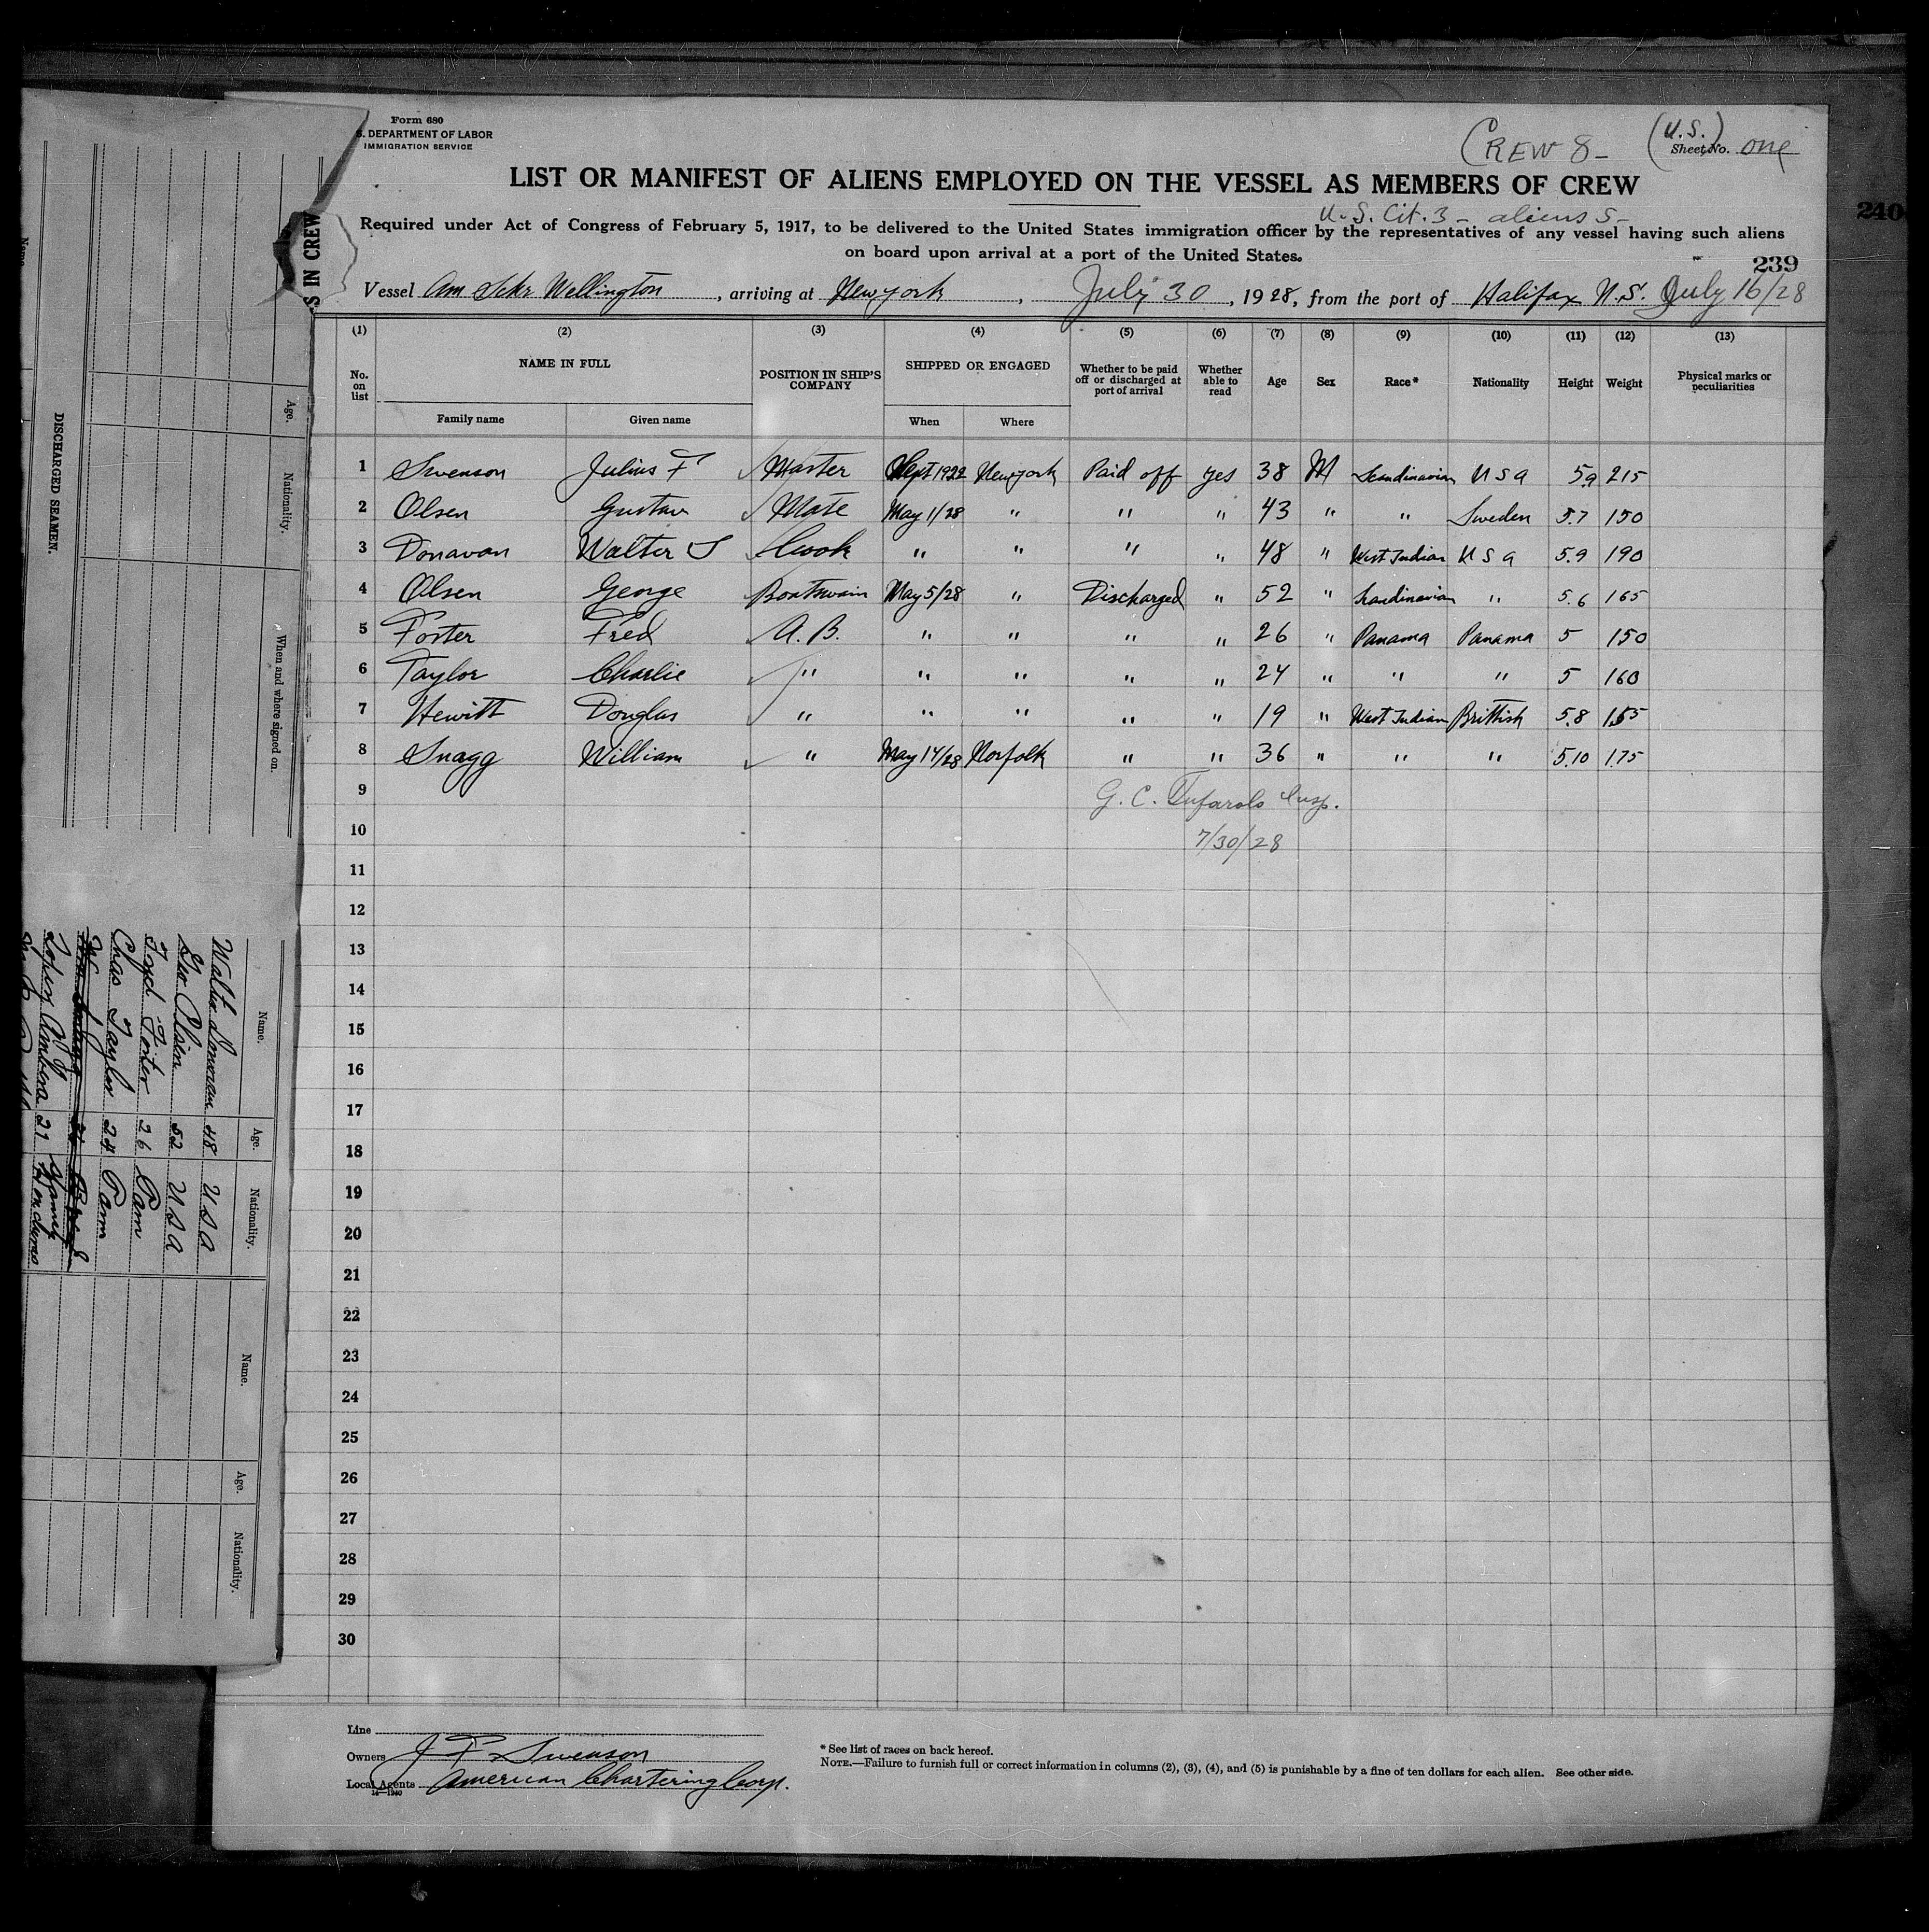 Form 680
S. DEPARTMENT OF LABOR
IMMIGRATION SERVICE
CREW 8- (U.S.)
Sheet No. one
LIST OR MANIFEST OF ALIENS EMPLOYED ON THE VESSEL AS MEMBERS OF CREW
U.S. Cit. 3 - aliens 5-
240
Required under Act of Congress of February 5, 1917, to be delivered to the United States immigration officer by the representatives of any vessel having such aliens
on board upon arrival at a port of the United States.
239
Vessel Am Schr Wellington, arriving at New york, July 30, 1928, from the port of Halifax N.S. July 16/28
(1) (2) (3) (4) (5) (6) (7) (8) (9) (10) (11) (12) (13)
No. on list NAME IN FULL POSITION IN SHIP'S COMPANY SHIPPED OR ENGAGED Whether to be paid off or discharged at port of arrival Whether able to read Age Sex Race* Nationality Height Weight Physical marks or peculiarities
Family name Given name When Where
1 Swenson Julius F Master Sept 1922 New york Paid off yes 38 M Scandinavian U S a 5.9 215
2 Olsen Gustav Mate May 1/28 " " " 43 " " Sweden 5.7 150
3 Donavan Walter S Cook " " " " 48 " West Indian U S a 5.9 190
4 Olsen George Boatswain May 5/28 " Discharged " 52 " Scandinavian " 5.6 165
5 Foster Fred A. B. " " " " 26 " Panama Panama 5 150
6 Taylor Charlie " " " " " 24 " " " 5 160
7 Hewitt Douglas " " " " " 19 " West Indian Brittish 5.8 155
8 Snagg William " May 14/28 Norfolk " " 36 " " " 5.10 175
9 G. C. Insp.
10 7/30/28
11
12
13
14
15
16
17
18
19
20
21
22
23
24
25
26
27
28
29
30
Line
Owners J F Swenson
Local Agents American Chartering Corp.
14—1940
* See list of races on back hereof.
NOTE.—Failure to furnish full or correct information in columns (2), (3), (4), and (5) is punishable by a fine of ten dollars for each alien. See other side.
S IN CREW
Age. Nationality. When and where signed on.
DISCHARGED SEAMEN.
Name. Age. Nationality.
Walter Donavan 48 U S A
Geo Olsen 52 U S A
Fred Foster 26 Pam
Chas Taylor 24 Pam
21
Honduras
Name. Age. Nationality.